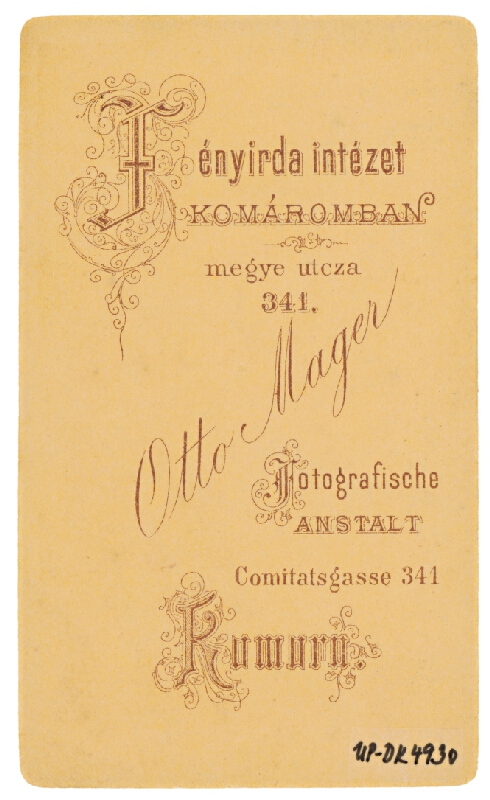 Fényirda intézet
KOMÁROMBAN
megye utcza
341.
Otto Mager
Fotografische
ANSTALT
Comitatsgasse 341
Komorn.
UP-DK 4930